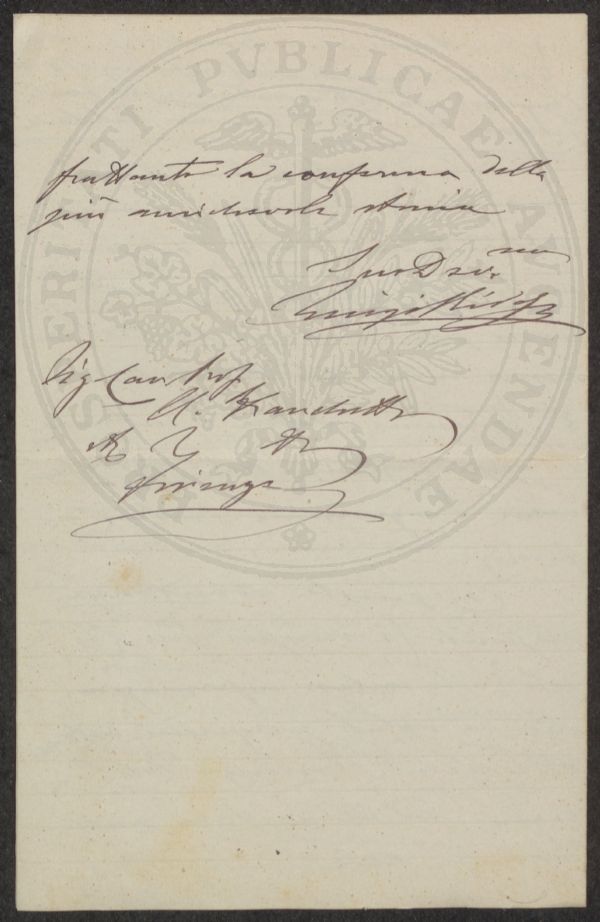 frattanto la conferma della
più amichevole stima
Suo Dev.mo
Luigi
Sig Cav Prof.
A
Firenze
PROSPERITATI PVBLICAE AVGENDAE